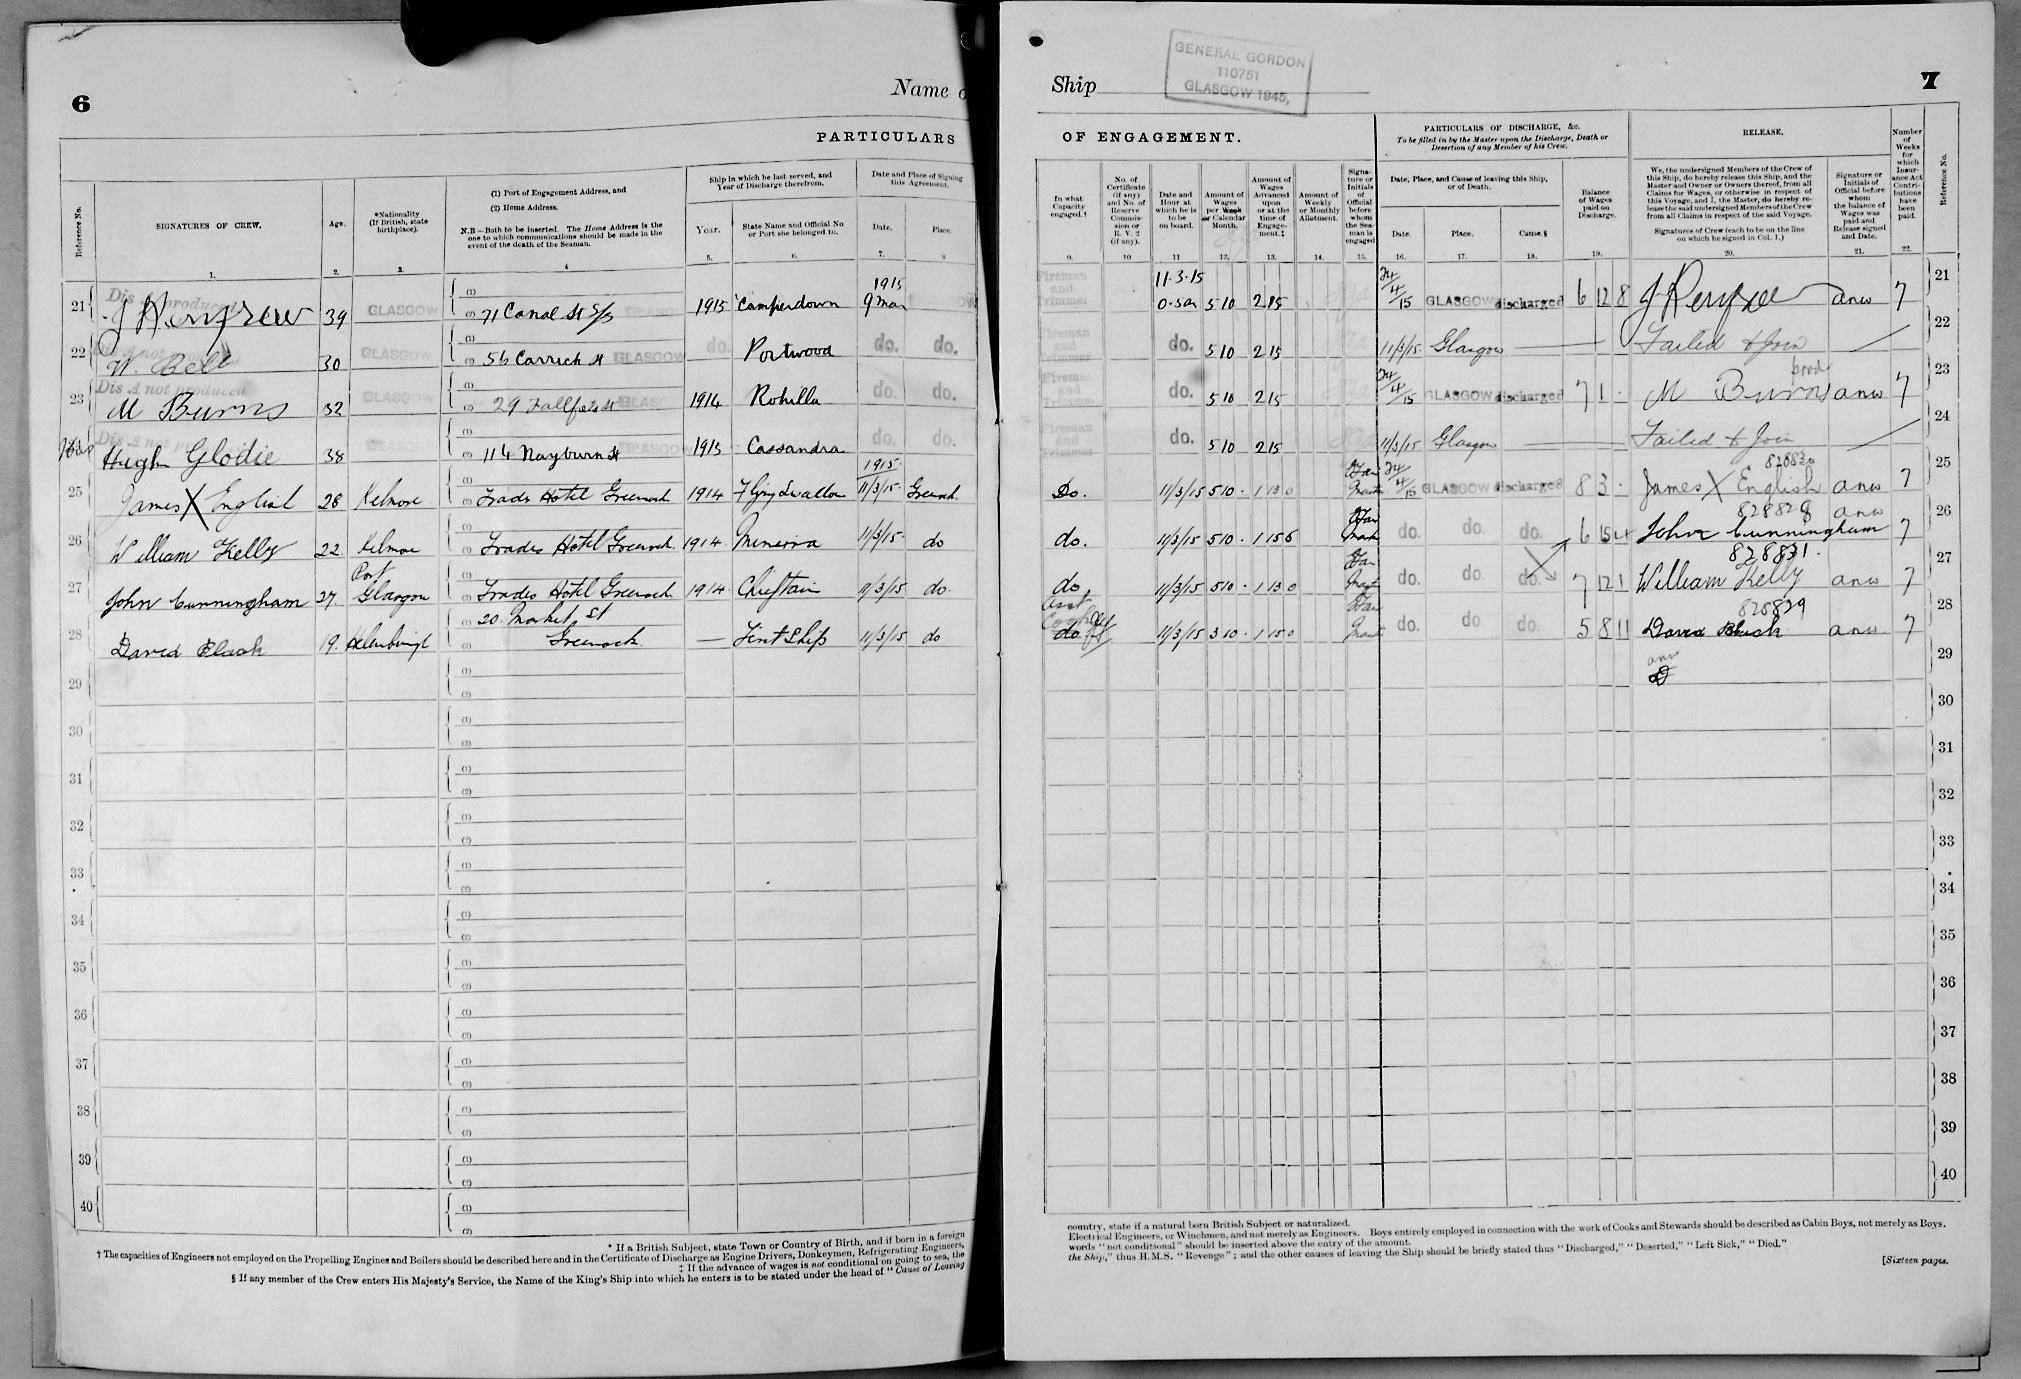 6
Name o
PARTICULARS
Reference No.
SIGNATURES OF CREW.
Age.
*Nationality
(If British, state
birthplace).
(1) Port of Engagement Address, and
(2) Home Address.
N.B—Both to be inserted. The Home Address is the
one to which communications should be made in the
event of the death of the Seaman.
Ship in which he last served, and
Year of Discharge therefrom.
Year.
State Name and Official No
or Port she belonged to.
Date and Place of Signing
this Agreement.
Date.
Place.
1.
2.
3.
4
5.
6.
7.
8
21 J Renfrew 39 GLASGOW 71 Canal St S/S 1915 Camperdown 1915 9 Mar
22 W. Bell 30 GLASGOW 56 Carrick St GLASGOW do. Portwood do. do.
Dis A not produced
23 M Burns 32 GLASGOW 29 1914 Rohilla do. do.
24 Hugh Glodie 38 114 Nayburn St 1915 Cassandra do. do.
1915
25 James X English 28 Kelmore Trades Hotel Greenock 1914 11/3/15 Greenock
26 William Kelly 22 Trades Hotel Greenock 1914 Minerva 11/3/15 do
27 John Cunningham 27 Port Glasgow Trades Hotel Greenock 1914 Chieftain 11/3/15 do
28 David Black 19. Helensburgh 20 Market St Greenock — First Ship 11/3/15 do
29
30
31
32
33
34
35
36
37
38
39
40
* If a British Subject, state Town or Country of Birth, and if born in a foreign
† The capacities of Engineers not employed on the Propelling Engines and Boilers should be described here and in the Certificate of Discharge as Engine Drivers, Donkeymen, Refrigerating Engineers,
‡ If the advance of wages is not conditional on going to sea, the
§ If any member of the Crew enters His Majesty's Service, the Name of the King's Ship into which he enters is to be stated under the head of "Cause of Leaving
Ship
GENERAL GORDON
110751
GLASGOW 1945,
7
OF ENGAGEMENT.
PARTICULARS OF DISCHARGE, &c.
To be filled in by the Master upon the Discharge, Death or
Desertion of any Member of his Crew.
RELEASE.
Number
of
Weeks
for
which
Insur-
ance Act
Contri-
butions
have
been
paid.
Reference No.
In what
Capacity
engaged.†
No. of
Certificate
(if any)
and No. of
Reserve
Commis-
sion or
R. V. 2
(if any).
Date and
Hour at
which he is
to be
on board.
Amount of
Wages
per Week
or Calendar
Month.
Amount of
Wages
Advanced
upon
or at the
time of
Engage-
ment.‡
Amount of
Weekly
or Monthly
Allotment.
Signa-
ture or
Initials
of
Official
before
whom
the Sea-
man is
engaged
Date, Place, and Cause of leaving this Ship,
or of Death.
Date.
Place.
Cause.§
Balance
of Wages
paid on
Discharge.
We, the undersigned Members of the Crew of
this Ship, do hereby release this Ship, and the
Master and Owner or Owners thereof, from all
Claims for Wages, or otherwise in respect of
this Voyage, and I, the Master, do hereby re-
lease the said undersigned Members of the Crew
from all Claims in respect of the said Voyage.
Signatures of Crew (each to be on the line
on which he signed in Col. 1.)
Signature or
Initials of
Official before
whom
the balance of
Wages was
paid and
Release signed
and Date.
9.
10
11
12.
13.
14.
15.
16.
17.
18.
19.
20.
21.
22.
Fireman and Trimmer 11.3.15 5 10 2 15 24/4/15 GLASGOW discharged 6 12 8 J Renfrew anw 7 21
Fireman and Trimmer do. 5 10 2 15 11/3/15 Glasgow Failed to Join 22
Fireman and Trimmer do. 5 10 2 15 24/4/15 GLASGOW discharged 7 1 M Burns anw 7 23
Fireman and Trimmer do. 5 10 2 15 11/3/15 Glasgow Failed to Join 24
828830
Do. 11/3/15 5 10 1 13 0 24/4/15 GLASGOW discharged 8 3 James X English anw 7 25
828828 anw
do. 11/3/15 5 10 1 15 do. do. do. 6 15 4 John Cunningham 7 26
828831.
do 11/3/15 5 10 1 13 0 do. do. do. 7 12 1 William Kelly anw 7 27
828829
Asst Cook do 11/3/15 3 10 1 15 0 do. do. do. 5 8 11 David Black anw. 7 28
anw
29
30
31
32
33
34
35
36
37
38
39
40
country, state if a natural born British Subject or naturalized.
Electrical Engineers, or Winchmen, and not merely as Engineers. Boys entirely employed in connection with the work of Cooks and Stewards should be described as Cabin Boys, not merely as Boys.
words "not conditional" should be inserted above the entry of the amount.
the Ship," thus H.M.S. "Revenge"; and the other causes of leaving the Ship should be briefly stated thus "Discharged," "Deserted," "Left Sick," "Died."
[Sixteen pages.